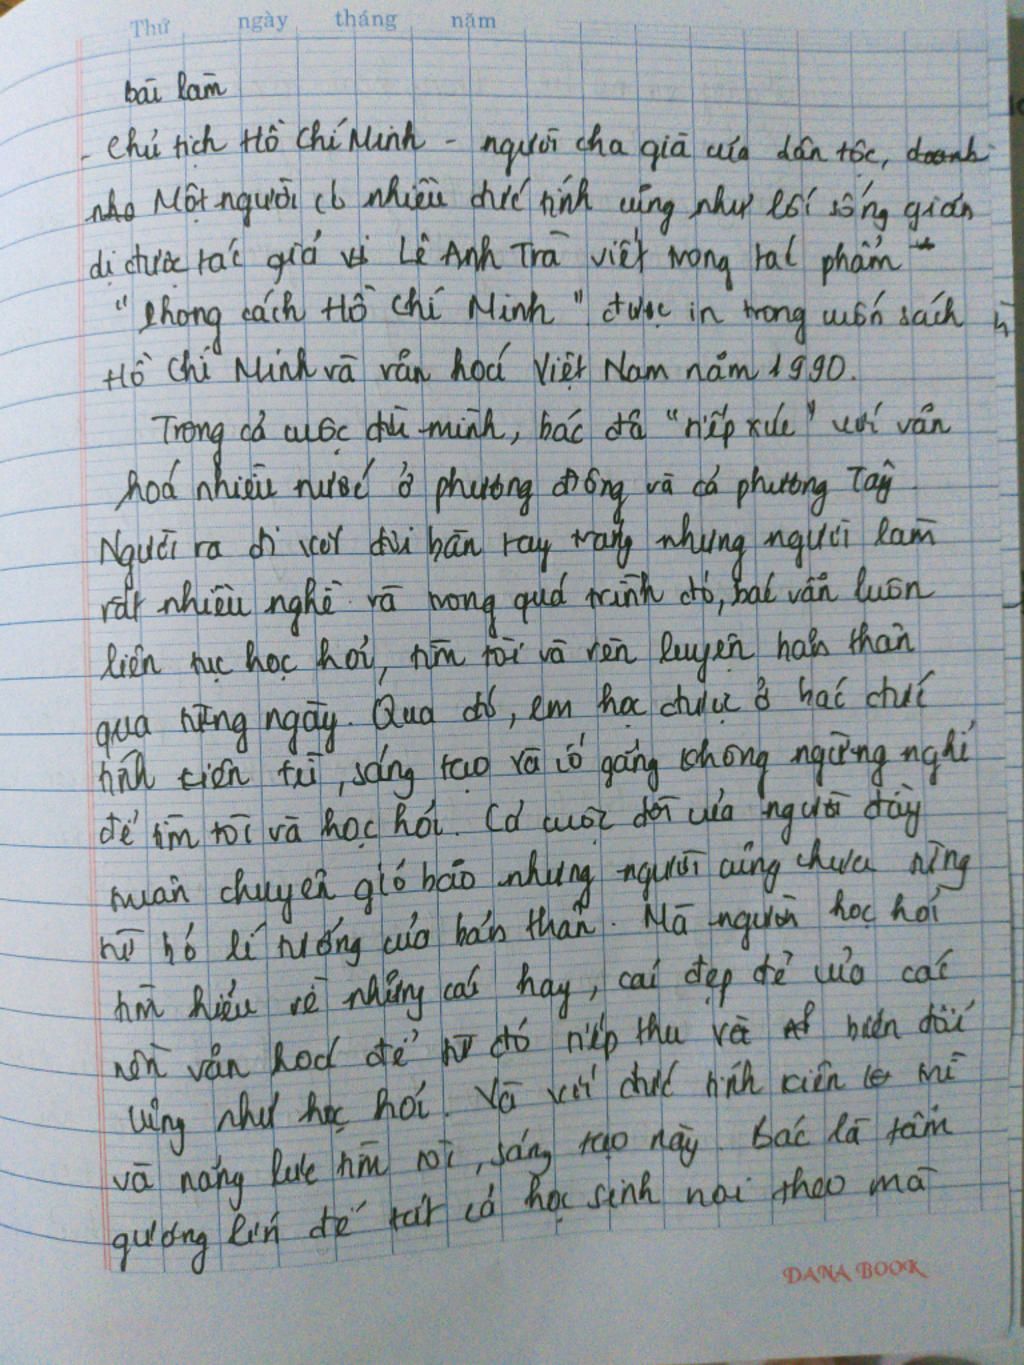 Thứ ngày tháng năm
bài làm
- Chủ tịch Hồ Chí Minh - người cha già của dân tộc, doanh
nho Một người có nhiều đức tính cũng như lối sống giản
dị được tác giả vi Lê Anh Trà viết trong tác phẩm
"Phong cách Hồ Chí Minh" được in trong cuốn sách
Hồ Chí Minh và văn hoá Việt Nam năm 1990.
Trong cả cuộc đời mình, bác đã "tiếp xúc" với văn
hoá nhiều nước ở phương đông và cả phương Tây
Người ra đi với đôi bàn tay trắng nhưng người làm
rất nhiều nghề và trong quá trình đó, bác vẫn luôn
liên tục học hỏi, tìm tòi và rèn luyện bản thân
qua từng ngày. Qua đó, em học được ở bác đức
tính kiên trì, sáng tạo và cố gắng không ngừng nghỉ
để tìm tòi và học hỏi. Cả cuộc đời của người đầy
truân chuyên gió bão nhưng người cũng chưa từng
từ bỏ lí tưởng của bản thân. Mà người học hỏi
tìm hiểu về những cái hay, cái đẹp đẽ của các
nền văn hoá để từ đó tiếp thu và biến đổi
cũng như học hỏi. Và với đức tính kiên trì
và năng lực tìm tòi, sáng tạo này bác là tấm
gương lớn để tất cả học sinh noi theo mà
DANA BOOK